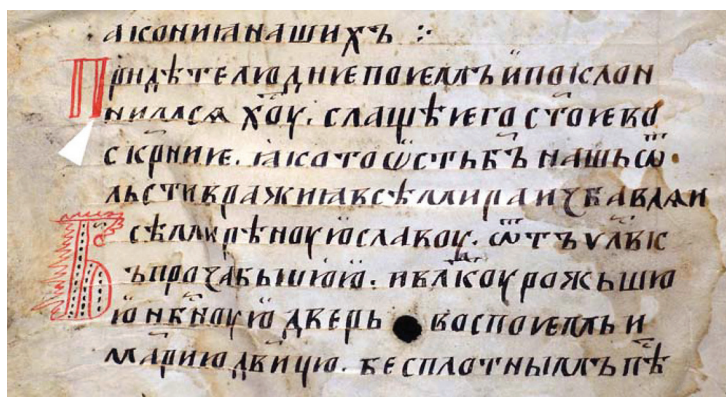 акониꙗнашихъ ⁘
Придѣтелюдиѥпоѥмъѝпокло
нимсѧ х҃оу. слащѣѥгос҃тоѥво
скр҃ниѥ. ꙗкотоѿстьб҃ъ нашьѿ
льстивражиꙗвсѣмираизбавлѧи
Всѣмирѣноуюславоу. ѿтъчл҃вк
ъпрозѧбьшюю. ивл҃коурожьшю
юнб҃ноую дверь воспоѥмьи
мариюдв҃ицю. бесплотнымъпѣ